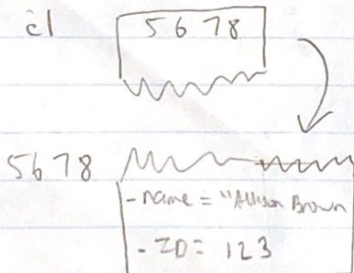 c1 5678
5678
- name = "Allison Brown
- ID = 123